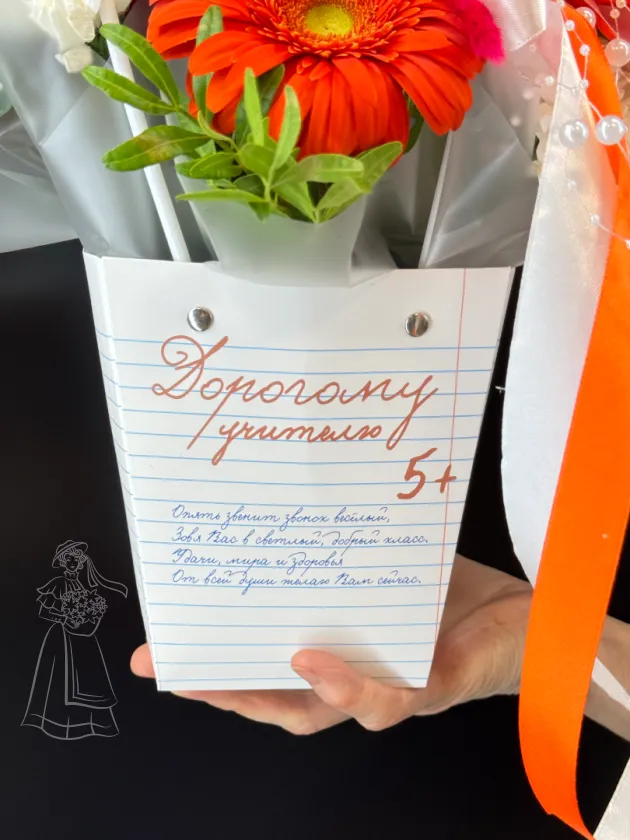 Дорогому
учителю
5+
Опять звенит звонок весёлый,
Зовя Вас в светлый, добрый класс.
Удачи, мира и здоровья
От всей души желаю Вам сейчас.